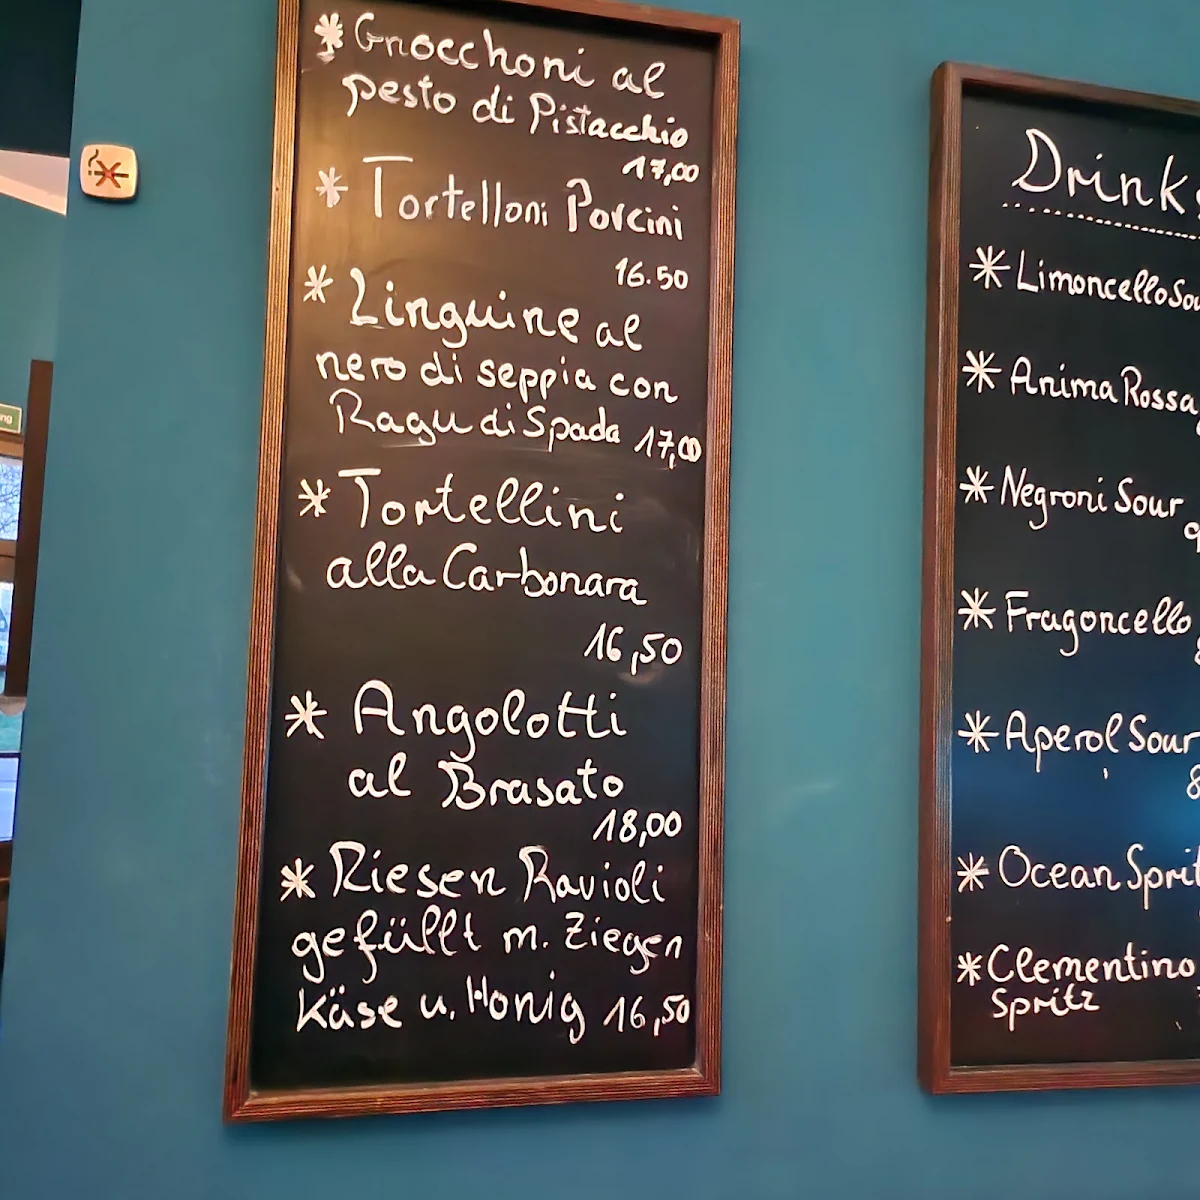 * Gnocchoni al
pesto di Pistacchio
17,00
* Tortelloni Porcini
16.50
* Linguine al
nero di seppia con
Ragu di Spada 17,00
* Tortellini
alla Carbonara
16,50
* Angolotti
al Brasato
18,00
* Riesen Ravioli
gefüllt m. Ziegen
Käse u. Honig 16,50
Drink
* Limoncello Sou
* Anima Rossa
* Negroni Sour
* Fragoncello
* Aperol Sour
8
* Ocean Sprit
* Clementino
Spritz